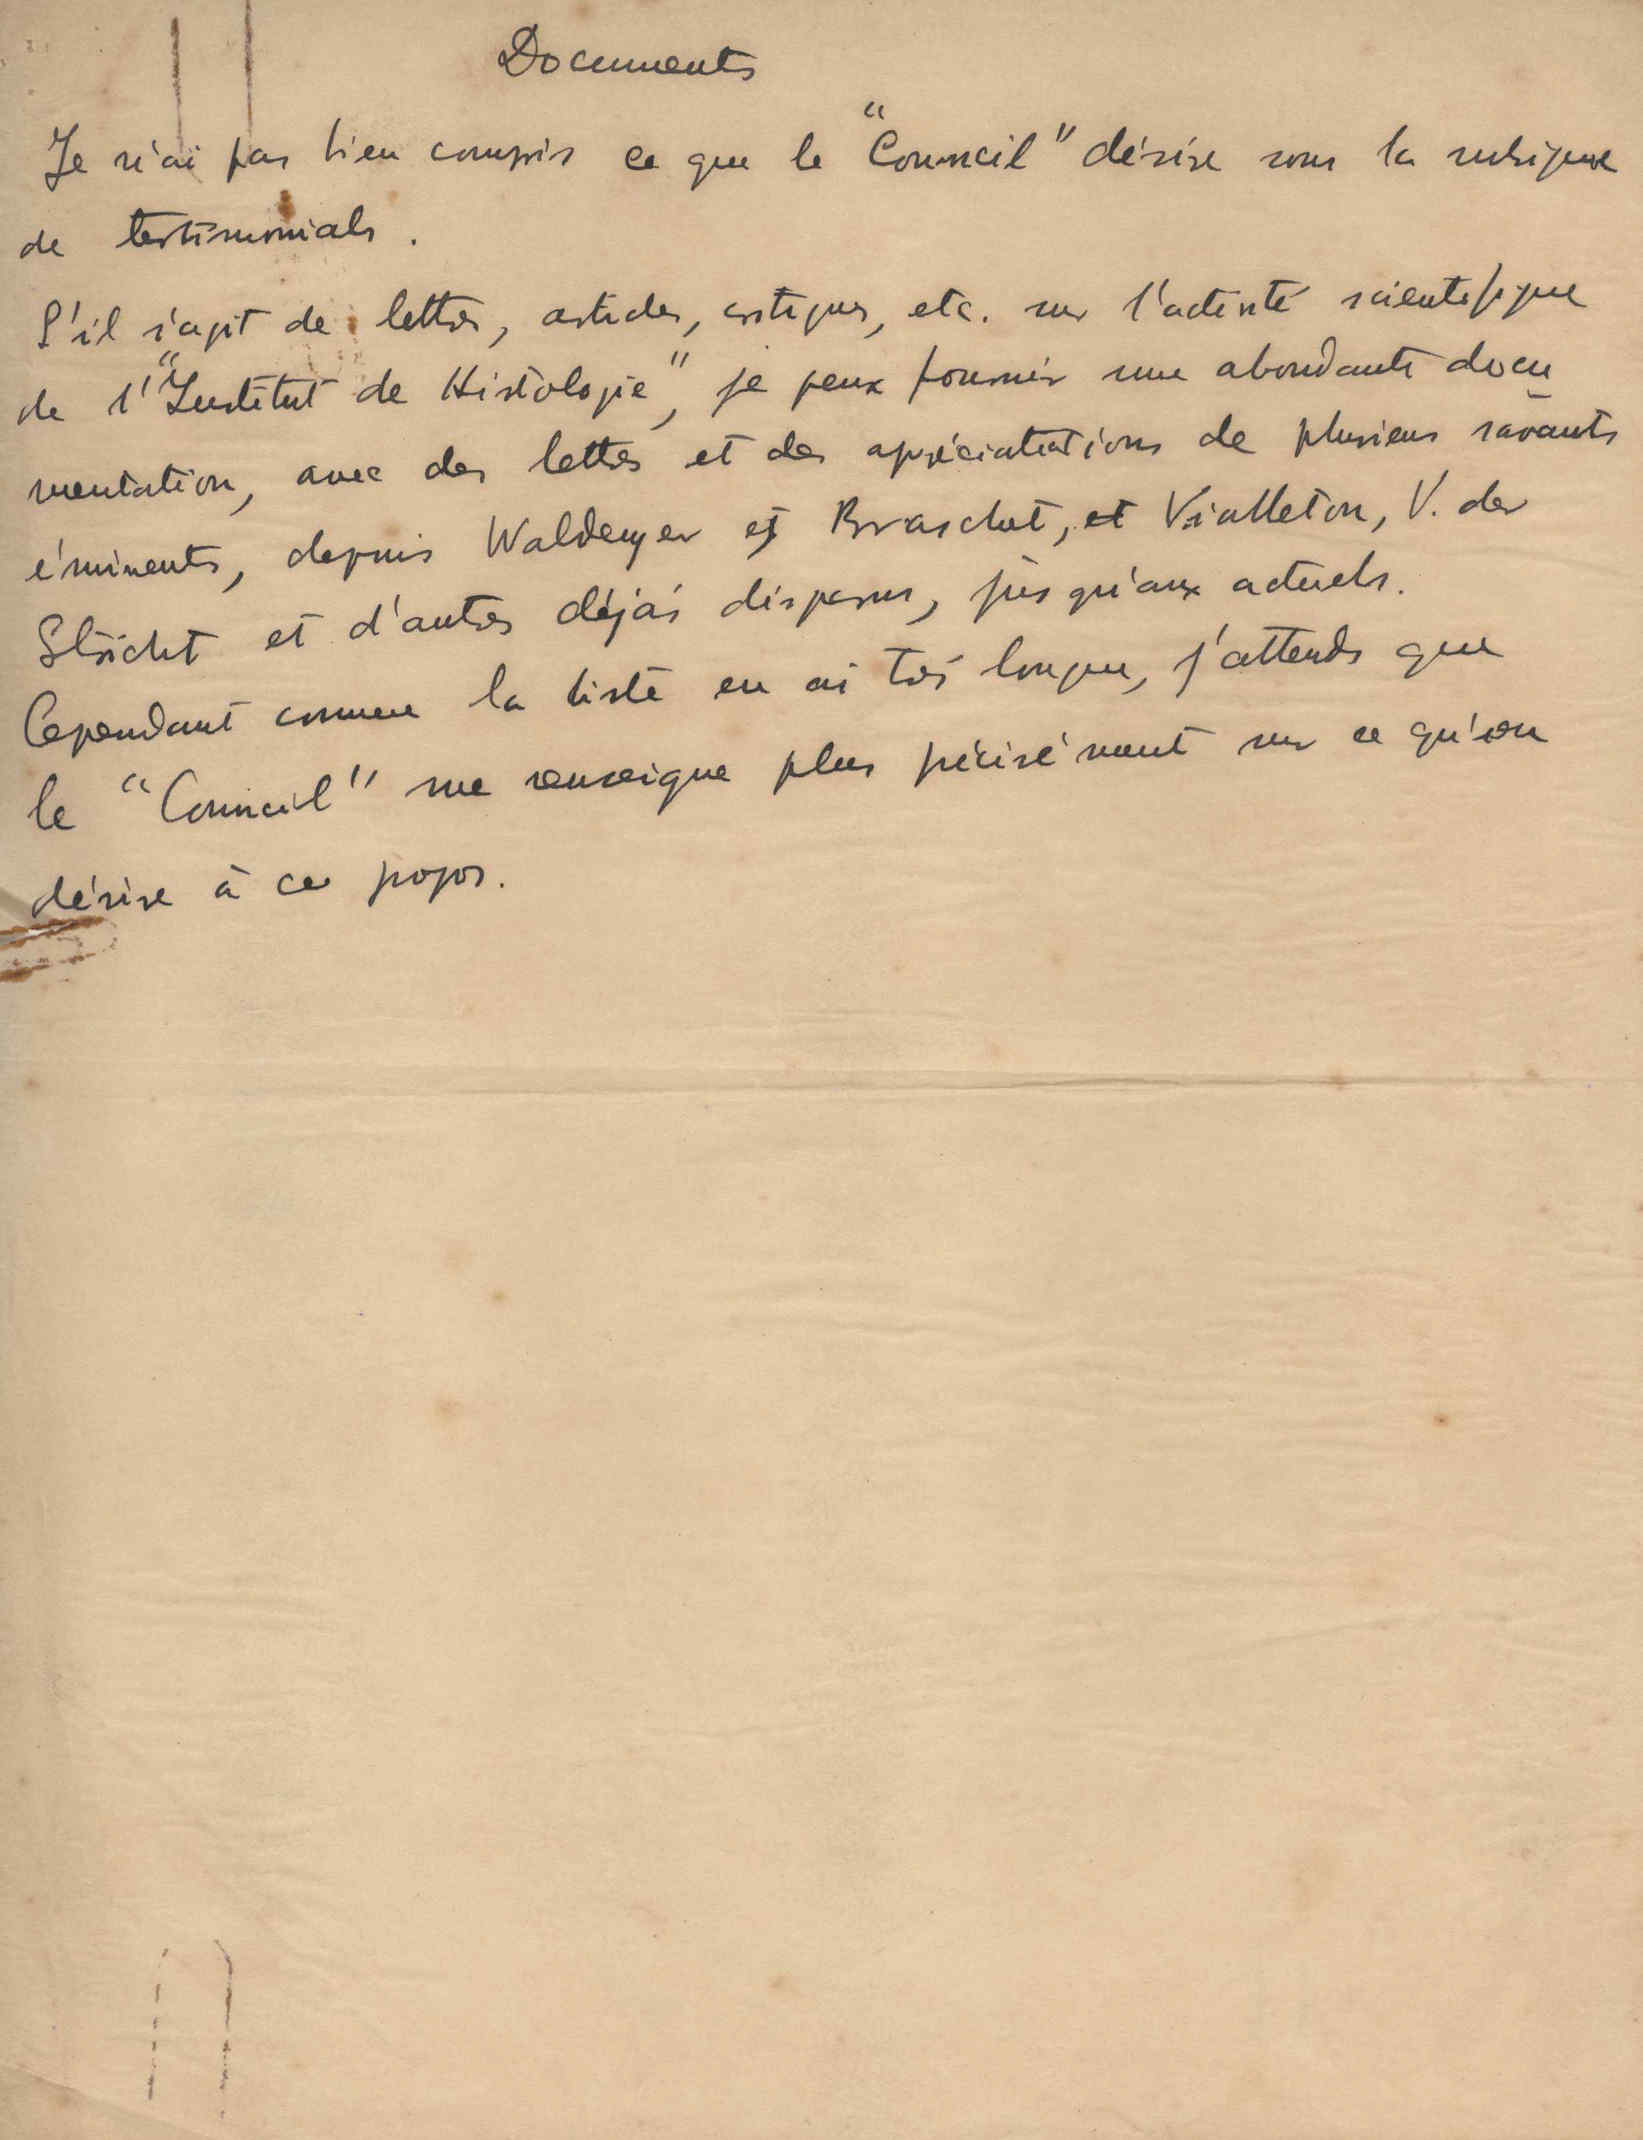 Documents
Je n'ai pas bien compris ce que le "Council" désire sous la rubrique
de testimonials.
S'il s'agit de lettres, articles, critiques, etc. sur l'activité scientifique
de l'"Institut de Histologie", je peux fournir une abondante docu
mentation, avec des lettres et des apréciatations de plusieurs savants
éminents, depuis Waldeyer et Braschet, et Vialleton, V. der
Stricht et d'autres déjá disparus, jusqu'aux actuels.
Cependant comme la liste en ai très longue, j'attends que
le "Council" me renseigne plus précisément sur ce qu'on
désire à ce propos.